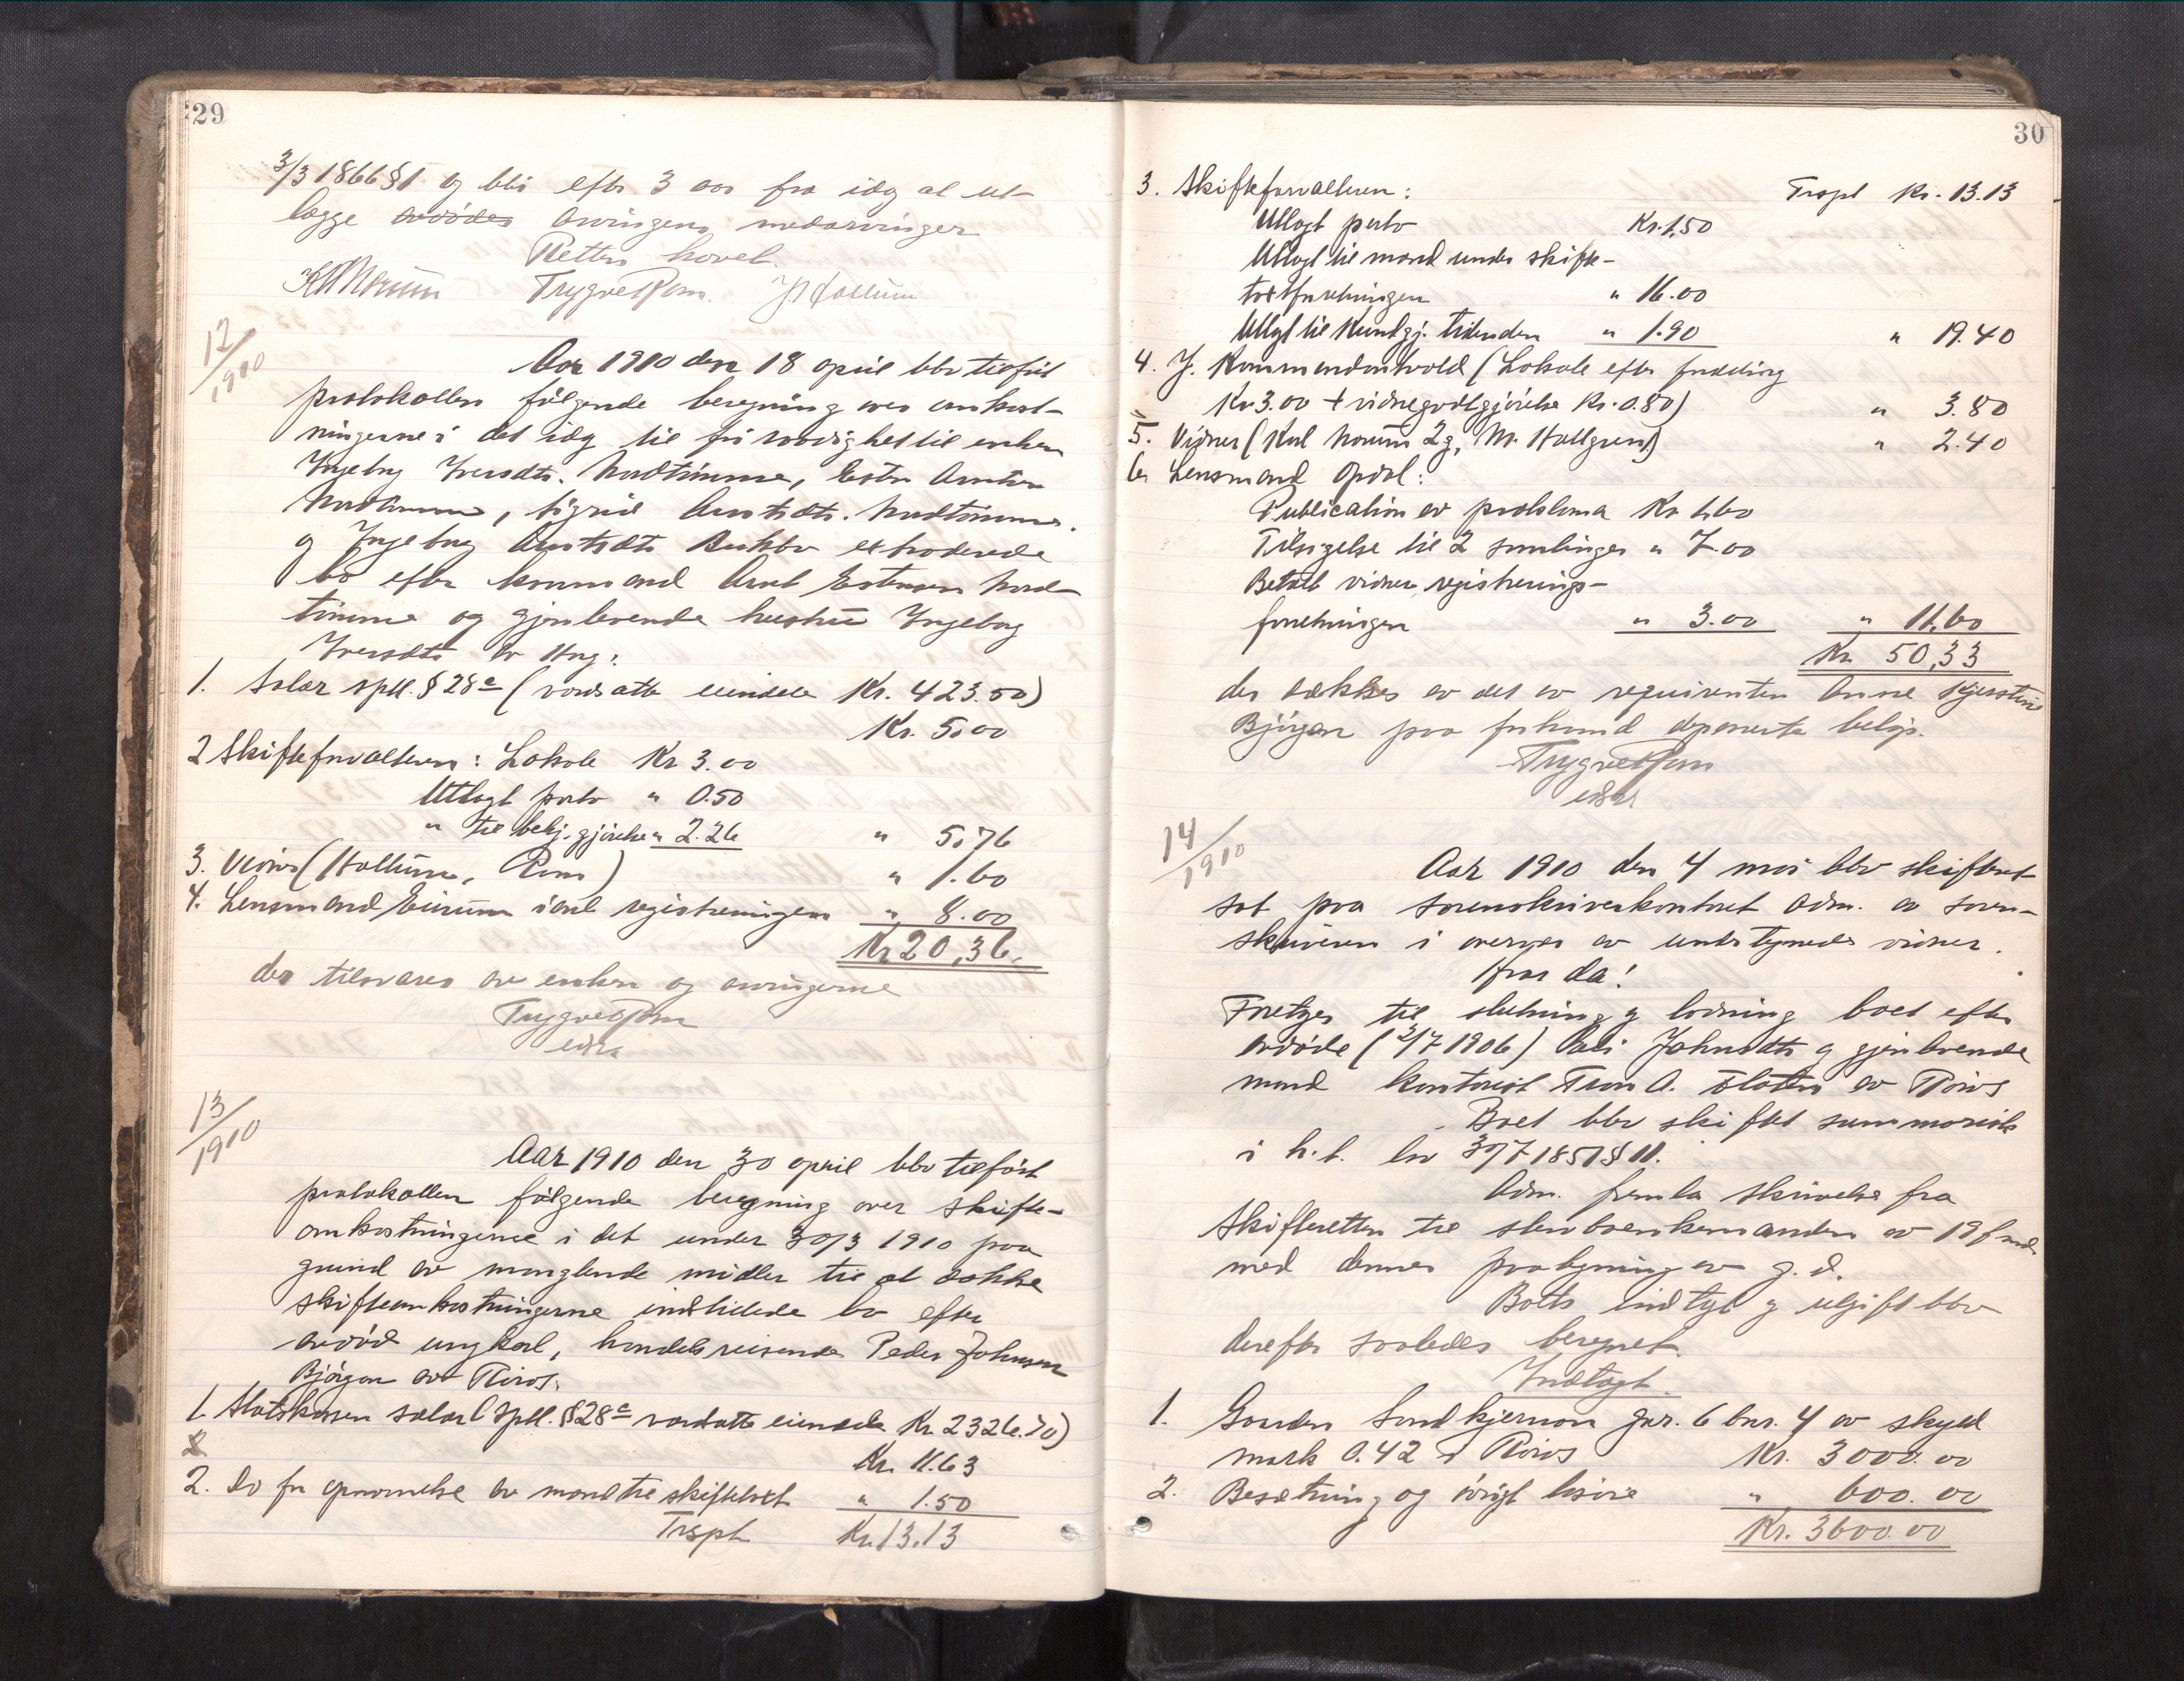 29
3/3 1866 § 1 og blir efter 3 aar fra idag at ut-
lægge avdødes arvingens medarvinger
Retten hævet.
Trygve Rom
12/1910
Aar 1910 den 18 april blev tilført
protokollen følgende beregning over omkost-
ningerne i det idag til fri raadighet til enken
Ingeborg Iversdtr. Nordtømme, Esten Arntsen
Nordtømme, Sigrid Arntsdtr. Nordtømme.
og Ingeborg Arntsdtr extraderede
bo efter kaarmand Arnt Estensen Nord-
tømme og gjenlevende hustru Ingeborg
Iversdtr av Hag:
1. Salær spll. § 28 a (vordsatte eiendele Kr. 423.50)
Kr. 5.00
2 Skifteforvalteren: Lokale Kr 3.00
Utlagt porto " 0.50
" til bekj.gjørelse " 2.26 " 5.76
3. Vidner (Hallum, Rom) " 1.60
4. Lensmand Eirum i anl registreringen " 8.00
Kr 20,36.
der tilsvares av enken og arvingerne
Trygve Rom
edsv
13/1910
Aar 1910 den 30 april blev tilført
protokollen følgende beregning over skifte-
omkostningerne i det under 30/3 1910 paa
grund av manglende midler til at dække
skifteomkostningerne indstillede bo efter
avdød ungkarl, handelsreisende Peder Johnsen
Bjørgan av Røros.
1. Statskassen salær (spll. § 28 a vordsatte eiendele Kr. 2326.70)
2
Kr. 11.63
2. Do for opnævnelse av mænd til skiftetakst " 1.50
Trspt Kr. 13.13
30
3. Skifteforvalteren: Trspt Kr. 13.13
Utlagt porto Kr. 1.50
Utlagt til mænd under skifte-
takstforretningen " 16.00
Utlagt til Kundgj. tidenden " 1.90 " 19.40
4. J. Kommandantvold (Lokale efter fradrag
Kr 3.00 + vidnegodtgjørelse Kr. 0.80) " 3.80
5. Vidner (Karl Norum 2 g, M. Hallgren) " 2.40
6. Lensmand Opdal:
Publication av proklama Kr 1.60
Tilsigelse til 2 samlinger " 7.00
Betalt vidner registrerings-
forretningen " 3.00 " 11.60
Kr 50,33
der dækkes av det av requirenten Anne Kjerstine
Bjørgan paa forhaand deponerte beløp.
Trygve Rom
edsv
14/1910
Aar 1910 den 4 mai blev skifteret
sat paa sorenskriverkontoret adm. av soren-
skriveren i overvær av undertegnede vidner.
Hvor da!
Foretages til slutning og lodning boet efter
avdøde (2/7 1906) Johnsdtr og gjenlevende
mand kontorist Tron A. Slatten av Røros
Boet blev skiftet summarisk
i h.t. lov 30/7 1851 § 11.
Adm. fremla skrivelse fra
skifteretten til stervboenkemanden av 19 f.md.
med dennes paategning av g. d.
Boets indtægt og utgift blev
derefter saaledes beregnet.
Indtægt.
1. Gaarden Sundkjernmo gnr. 6 bnr. 4 av skyld
mark 0.42 i Røros Kr. 3000.00
2. Besætning og øvrigt løsøre " 600.00
Kr. 3600.00